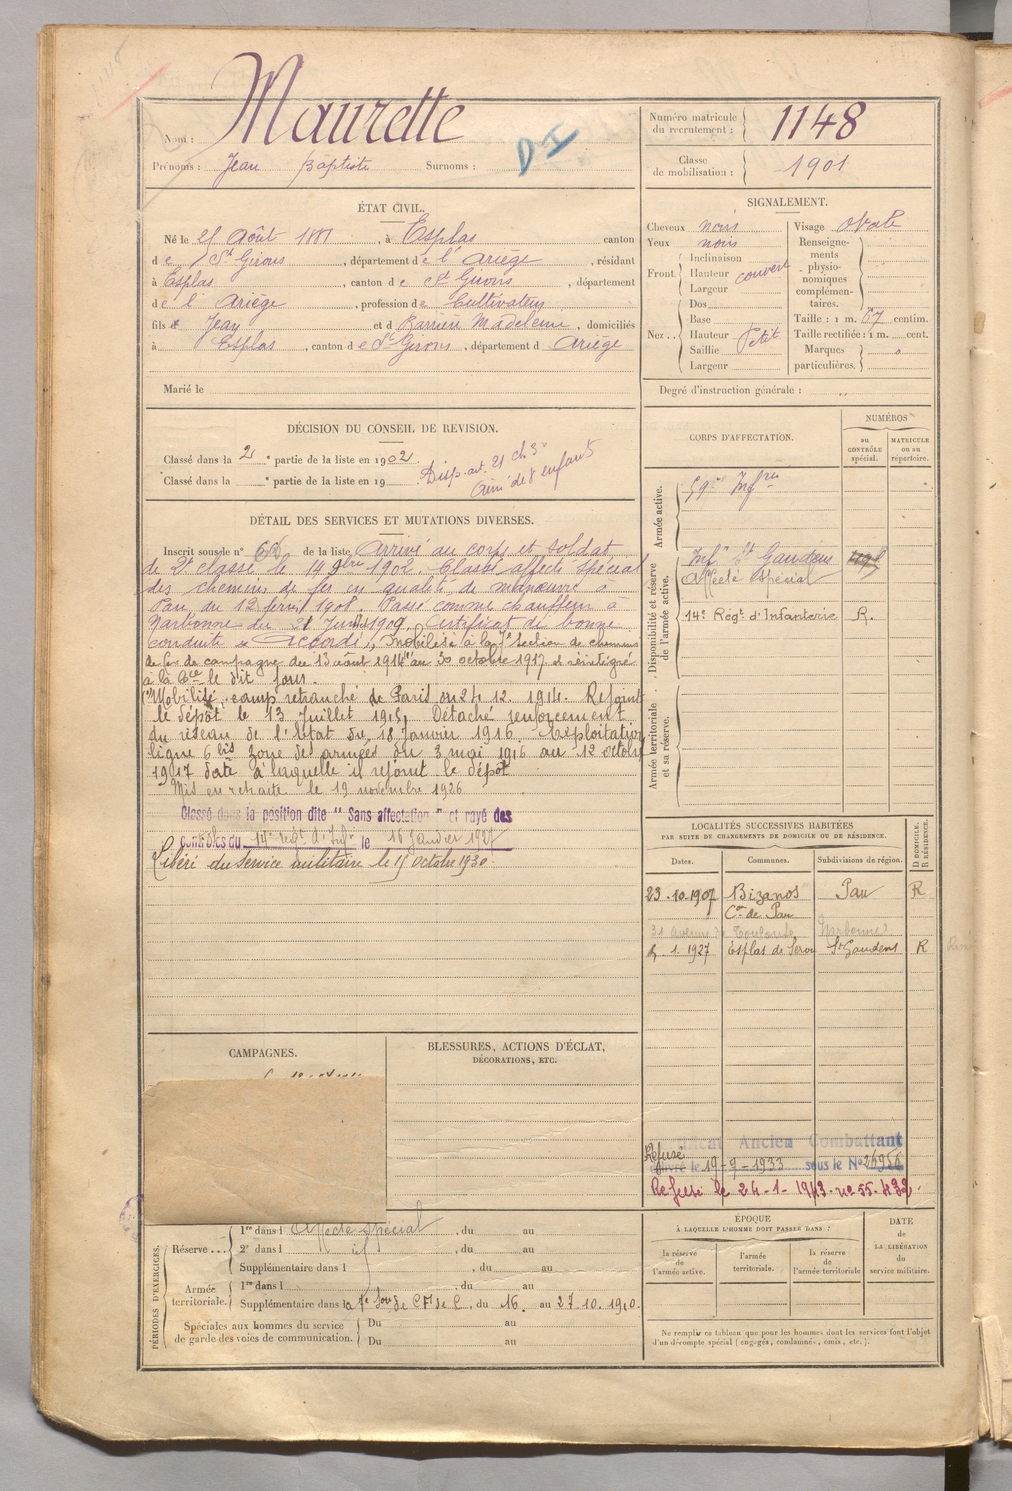 Maurette
Nom :
Prénoms : Jean Baptiste Surnoms :
D I
Numéro matricule du recrutement : 1148
Classe de mobilisation : 1901
ÉTAT CIVIL.
Né le 21 Août 1881, à Esplas canton
de St Girons, département de l'Ariège, résidant
à Esplas, canton de St Girons, département
de l'Ariège, profession de Cultivateur
fils de Jean et de Barrière Madeleine, domiciliés
à Esplas, canton de St Girons, département d Ariège
Marié le
SIGNALEMENT.
Cheveux noirs
Yeux noirs
Front. Inclinaison
Hauteur couvert
Largeur
Nez.. Dos
Base
Hauteur Petit
Saillie
Largeur
Visage ovale
Renseignements physionomiques complémentaires.
Taille : 1 m. 67 centim.
Taille rectifiée : 1 m. cent.
Marques particulières.
Degré d'instruction générale :
DÉCISION DU CONSEIL DE REVISION.
Classé dans la 2e partie de la liste en 1902
Classé dans la e partie de la liste en 19
Disp. art. 21 ch 3°
Ainé de 8 enfants
DÉTAIL DES SERVICES ET MUTATIONS DIVERSES.
Inscrit sous le n° de la liste Arrivé au corps et soldat
de 2e classe le 14 9bre 1902. Classé affecté spécial
des chemins de fer en qualité de manœuvre à
Pau, du 12 février 1908. Passé comme chauffeur à
Narbonne du 21 Juin 1909. Certificat de bonne
conduite "Accordé", Mobilisé à la 7e Section de chemins
de fer de campagne du 13 août 1914 au 30 octobre 1917 et réintégré
à la Cie le dit jour.
(Mobilisé, camp retranché de Paris du 24.12.1914. Rejoint
le dépôt le 13 Juillet 1915, Détaché renforcement
du réseau de l'Etat du 18 Janvier 1916. Exploitation
ligne 6 bis zone des armées du 3 mai 1916 au 12 octobre
1917 date à laquelle il rejoint le dépôt
Mis en retraite le 19 novembre 1926
Classé dans la position dite "Sans affectation" et rayé des
contrôles du 14e régt d'Infie le 16 Janvier 1927
Libéré du service militaire le 15 octobre 1930.
CORPS D'AFFECTATION.
NUMÉROS
au CONTRÔLE spécial.
MATRICULE ou au répertoire.
Armée active.
59e Infrie
Disponibilité et réserve de l'armée active.
Infie St Gaudens
Affecté Spécial
14e Régt d'Infanterie R.
Armée territoriale et sa réserve.
LOCALITÉS SUCCESSIVES HABITÉES
PAR SUITE DE CHANGEMENTS DE DOMICILE OU DE RÉSIDENCE.
Dates. Communes. Subdivisions de région. D DOMICILE. R RÉSIDENCE.
23.10.1907 Bizanos Pau R
Con de Pau
31 avenue de Toulouse, Narbonne
1.1927 Esplas de Serou St Gaudens R
CAMPAGNES.
BLESSURES, ACTIONS D'ÉCLAT,
DÉCORATIONS, ETC.
Ancien Combattant
Refusé
le 19-9-1933 sous le N°
Refusé le 24-1-1943. n° 55.432.
PÉRIODES D'EXERCICES.
Réserve... 1re dans l Affecté spécial, du au
2e dans l id, du au
Supplémentaire dans l, du au
Armée territoriale. 1re dans l, du au
Supplémentaire dans la 7e Son de C.F. de C., du 16. au 27.10.1910.
Spéciales aux hommes du service de garde des voies de communication. Du au
Du au
ÉPOQUE
À LAQUELLE L'HOMME DOIT PASSER DANS :
la réserve de l'armée active.
l'armée territoriale.
la réserve de l'armée territoriale
DATE de LA LIBÉRATION du service militaire.
Ne remplir ce tableau que pour les hommes dont les services font l'objet
d'un décompte spécial (engagés, condamnés, omis, etc.).